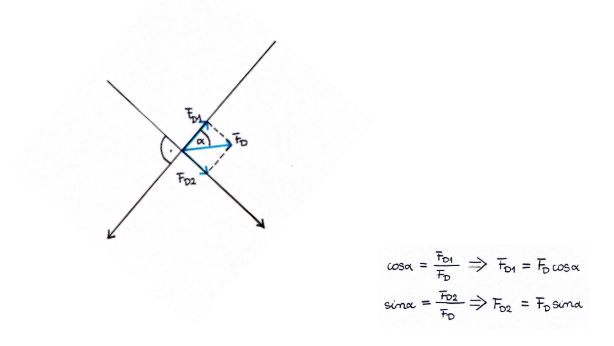 F_D1
α
F_D
F_D2
cosα = F_D1/F_D ⇒ F_D1 = F_D cosα
sinα = F_D2/F_D ⇒ F_D2 = F_D sinα